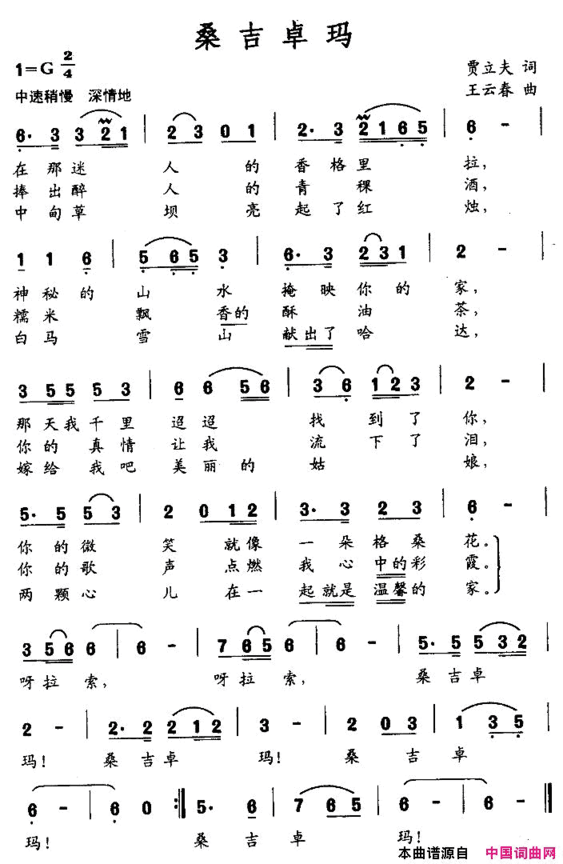 桑吉卓玛
1=G 2/4
贾立夫 词
中速稍慢 深情地
王云春 曲
6· 3 3 2 1 | 2 3 0 1 | 2· 3 2 1 6 5 | 6 - |
在那迷 人 的 香格里 拉,
捧出醉 人 的 青 稞 酒,
中甸草 坝 亮 起了红 烛,
1 1 6 | 5 6 5 3 | 6· 3 2 3 1 | 2 - |
神秘的 山 水 掩映你的 家,
糯米 飘 香的 酥 油 茶,
白马 雪 山 献出了哈 达,
3 5 5 5 3 | 6 6 5 6 | 3 6 1 2 3 | 2 - |
那天我千里 迢迢 找 到了 你,
你的真情让我 流 下了 泪,
嫁给我吧美丽的 姑 娘,
5· 5 5 3 | 2 0 1 2 | 3· 3 2 3 | 6 - |
你的微 笑 就像 一朵格桑 花。
你的歌 声 点燃 我心中的彩 霞。
两颗心 儿在一 起就是温馨的 家。
3 5 6 6 | 6 - | 7 6 5 6 | 6 - | 5· 5 5 3 2 |
呀拉索, 呀拉索, 桑吉卓
2 - | 2· 2 2 1 2 | 3 - | 2 0 3 | 1 3 5 |
玛! 桑吉卓 玛! 桑吉卓
6 - | 6 0 :| 5· 6 | 7 6 5 | 6 - | 6 - |
玛! 桑吉卓 玛!
本曲谱源自 中国词曲网